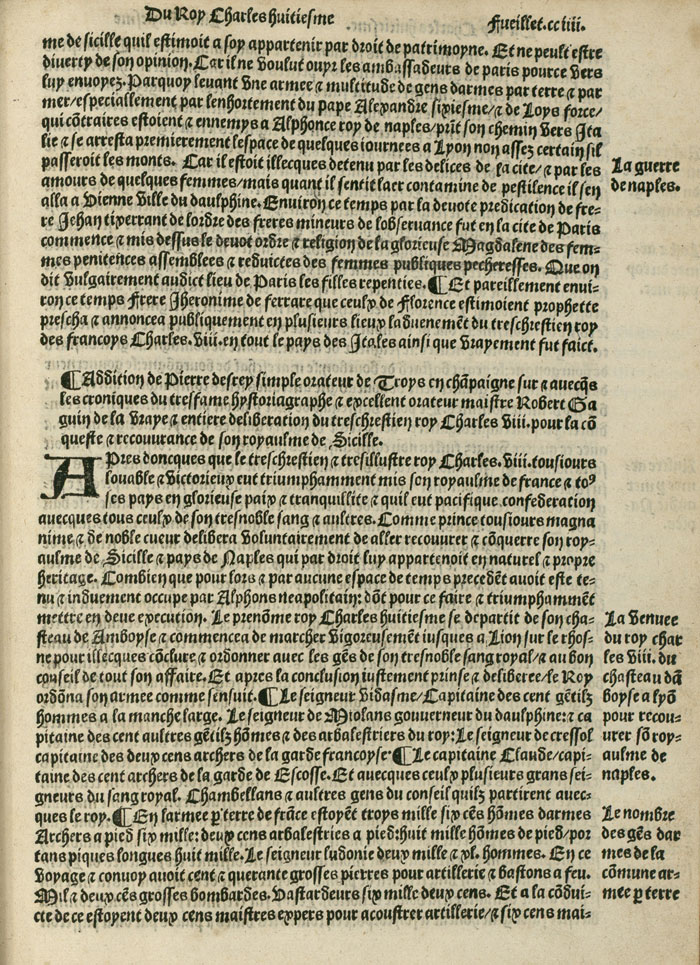 Du Roy Charles huitiesme
Fueillet.cciiii.
me de sicille quil estimoit a soy appartenir par droit de patrimoyne. Et ne peult estre
diverty de son opinion. Car il ne voulut ouyr les ambassadeurs de paris pource vers
luy envoyez. Parquoy levant vne armee ⁊ multitude de gens darmes par terre ⁊ par
mer/especiallement par lenhortement du pape Alexandre sixiesme/⁊ de Loys force/
qui cõtraires estoient ⁊ ennemys a Alphonce roy de naples/prĩt son chemin vers Jta
lie ⁊ se arresta premierement lespace de quelques iournees a Lyon non assez certain sil
passeroit les monts. Car il estoit illecques detenu par les delices de la cite/⁊ par les
amours de quelques femmes/mais quant il sentit laer contamine de pestilence il sen
alla a Vienne ville du daulphine. Environ ce temps par la devote predication de fre-
re Jehan tixerrant de lordre des freres mineurs de lobservance fut en la cite de Paris
commence ⁊ mis dessus le devot ordre ⁊ religion de la glorieuse Magdalene des fem-
mes penitences assemblees ⁊ reduictes des femmes publiques pecheresses. Que on
dit vulgairement audict lieu de Paris les filles repenties. ¶ Et pareillement envi-
ron ce temps Frere Jheronime de ferrare que ceulx de Florence estimoient prophette
prescha ⁊ annoncea publiquement en plusieurs lieux la duenemẽt du treschrestien roy
des francoys Charles. viii. en tout le pays des Jtales ainsi que vrayement fut faict.
La guerre
de naples.
¶ Addition de Pierre desrey simple orateur de Troys en chãpaigne sur ⁊ avecq̃s
les croniques du tresfame hystoriagraphe ⁊ excellent orateur maistre Robert Ga
guin de la vraye ⁊ entiere deliberation du treschrestien roy Charles viii. pour la cõ
queste ⁊ recouvrance de son royaulme de Sicille.
APres doncques que le treschrestien ⁊ tresillustre roy Charles. viii. tousiours
louable ⁊ victorieux eut triumphamment mis son royaulme de france ⁊ toꝰ
ses pays en glorieuse paix ⁊ tranquillite ⁊ quil eut pacifique confederation
avecques tous ceulx de son tresnoble sang ⁊ aultres. Comme prince tousiours magna
nime ⁊ de noble cueur delibera voluntairement de aller recouvrer ⁊ cõquerre son roy-
aulme de Sicille ⁊ pays de Naples qui par droit luy appartenoit en naturel ⁊ propre
heritage. Combien que pour lors ⁊ par aucune espace de temps precedẽt avoit este te-
nu ⁊ induement occupe par Alphons neapolitain: dõt pour ce faire ⁊ triumphammẽt
mettre en deue execution. Le prenõme roy Charles huitiesme se departit de son cha-
steau de Amboyse ⁊ commencea de marcher vigoreusemẽt iusques a Lion sur le rhos-
ne pour illecques cõclure ⁊ ordonner avec les gẽs de son tresnoble sang royal/⁊ au bon
conseil de tout son affaire. Et apres la conclusion iustement prinse ⁊ deliberee/le Roy
ordõna son armee comme sensuit. ¶ Le seigneur Vidasme/Capitaine des cent gẽtilz
hommes a la manche large. Le seigneur de Miolans gouverneur du daulphine: ⁊ ca
pitaine des cent aultres gẽtilz hõmes ⁊ des arbalestriers du roy: Le seigneur de cressol
capitaine des deux cens archers de la garde francoyse. ¶ Le capitaine Claude/capi-
taine des cent archers de la garde de Escosse. Et avecques ceulx plusieurs grans sei-
gneurs du sang royal. Chambellans ⁊ aultres gens du conseil quilz partirent avec-
ques le roy. ¶ En larmee p̱ terre de frãce estoyẽt troys mille six cẽs hõmes darmes
Archers a pied six mille: deux cens arbalestries a pied: huit mille hõmes de pied/por
tans piques longues huit mille. Le seigneur ludonie deux mille ⁊ xl. hommes. En ce
voyage ⁊ convoy avoit cent ⁊ querante grosses pierres pour artillerie ⁊ bastons a feu.
Mil ⁊ deux cẽs grosses bombardes. Vastardeurs six mille deux cens. Et a la cõdui-
cte de ce estoyent deux cens maistres expers pour acoustrer artillerie/⁊ six cens mai-
La venuee
du roy char
les viii. du
chasteau dã
boyse a lyõ
pour recou-
vrer sõ roy-
aulme de
naples.
Le nombre
des gẽs dar
mes de la
cõmune ar-
mee p̱ terre